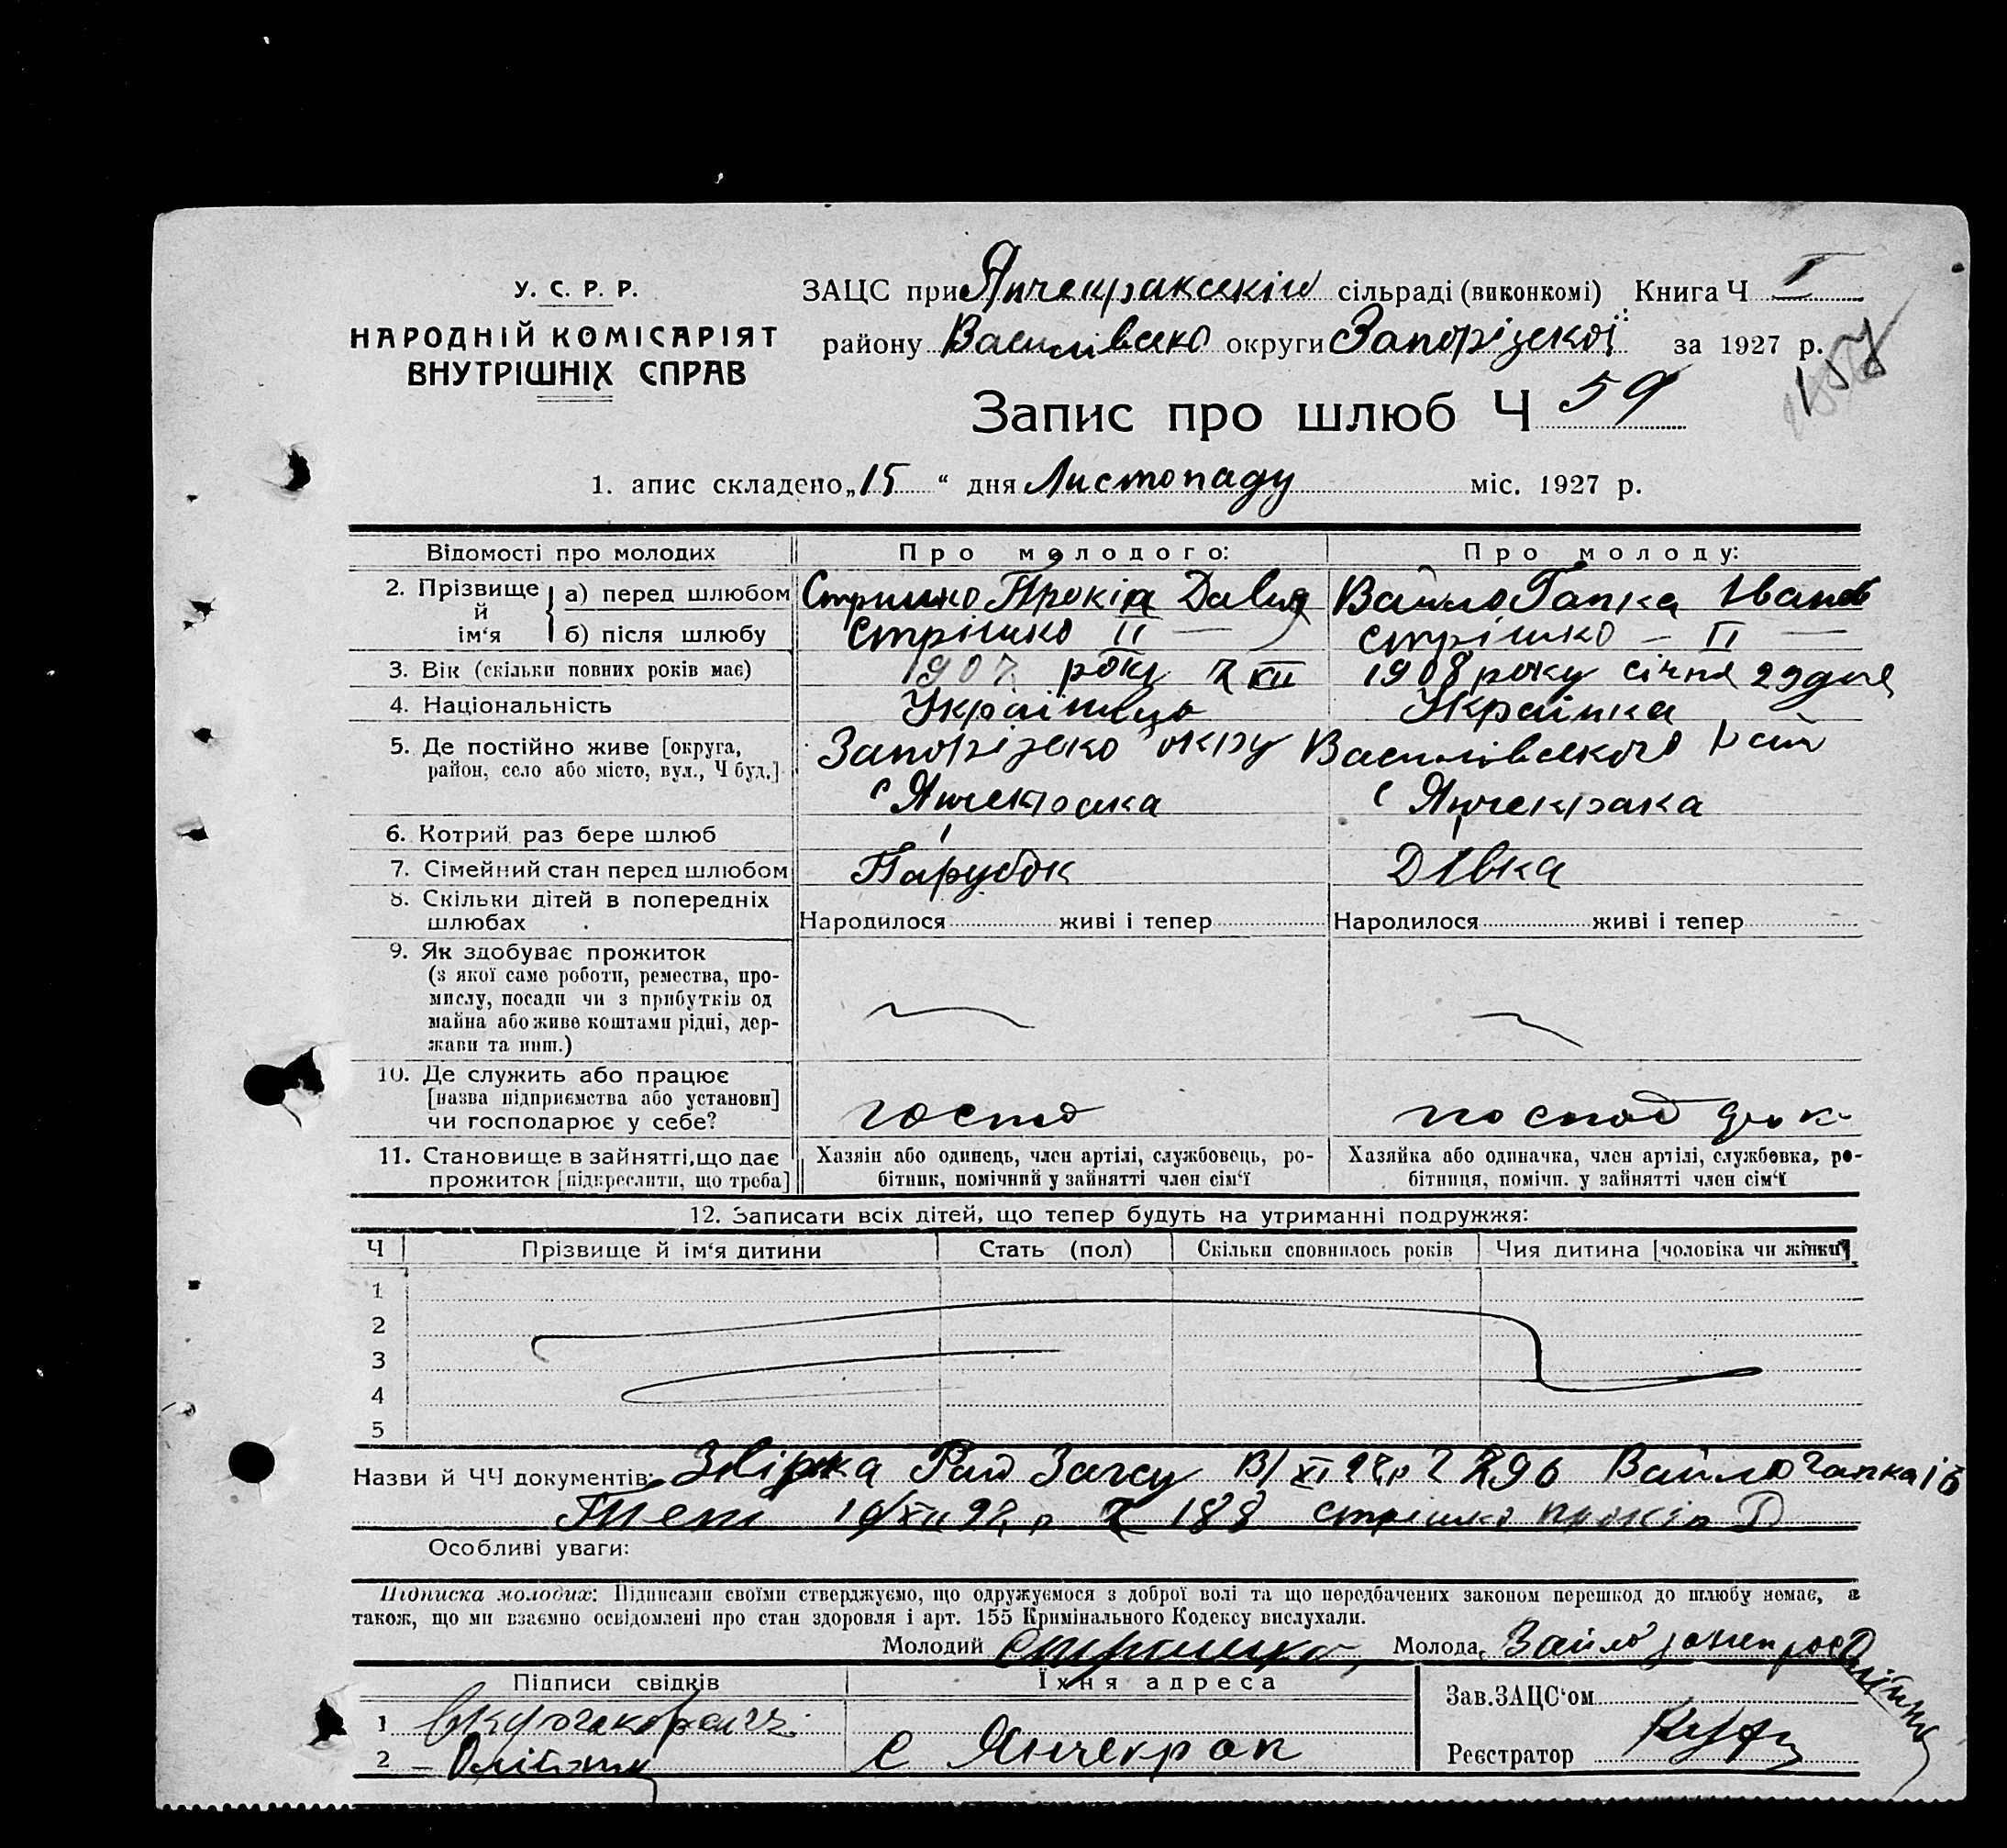 У. С. Р. Р.
НАРОДНІЙ КОМІСАРІЯТ
ВНУТРІШНІХ СПРАВ
ЗАЦС при Янчекракскій сільраді (виконкомі) Книга Ч I
району Василівсько округи Запорізської за 1927 р.
157
Запис про шлюб Ч 59
1. апис складено „15“ дня Листопаду міс. 1927 р.
Відомості про молодих Про молодого: Про молоду:
2. Прізвище й ім‘я а) перед шлюбом Стришко Прокіп Давид Вайло Гапка Іванов
б) після шлюбу Стрішко II — Стрішко — II —
3. Вік (скільки повних років має) 1907 року 7 XII 1908 року січня 29 дня
4. Національність Українець Українка
5. Де постійно живе [округа, район, село або місто, вул., Ч буд.] Запорізско окру Василівського рай
с Янчекрака с Янчекрака
6. Котрий раз бере шлюб
7. Сімейний стан перед шлюбом Парубок Дівка
8. Скільки дітей в попередніх шлюбах Народилося живі і тепер Народилося живі і тепер
9. Як здобуває прожиток
(з якої само роботи, ремества, про-
мислу, посади чи з прибутків од
майна або живе коштами рідні, дер-
жави та инш.)
10. Де служить або працює
[назва підприємства або установи]
чи господарює у себе? господ
11. Становище в зайнятті, що дає прожиток [підкреслити, що треба]
Хазяїн або одинець, член артілі, службовець, ро-
бітник, помічний у зайнятті член сім‘ї
Хазяйка або одиначка, член артілі, службовка, ро-
бітниця, помічн. у зайнятті член сім‘ї
12. Записати всіх дітей, що тепер будуть на утриманні подружжя:
Ч Прізвище й ім‘я дитини Стать (пол) Скільки сповнилось років Чия дитина [чоловіка чи жінки]
1
2
3
4
5
Назви й ЧЧ документів: Звірка Рай Загсу XI 27 р 296 Вайло Гапка Ів
188 Стрішко Прокіп Д
Особливі уваги:
Підписка молодих: Підписами своїми стверджуємо, що одружуємося з доброї волі та що передбачених законом перешкод до шлюбу немає, а
також, що ми взаємно освідомлені про стан здоровля і арт. 155 Кримінального Кодексу вислухали.
Молодий Стришко, Молода, Вайло
Підписи свідків Їхня адреса Зав. ЗАЦС‘ом
1
2 с Янчекрак
Реєстратор